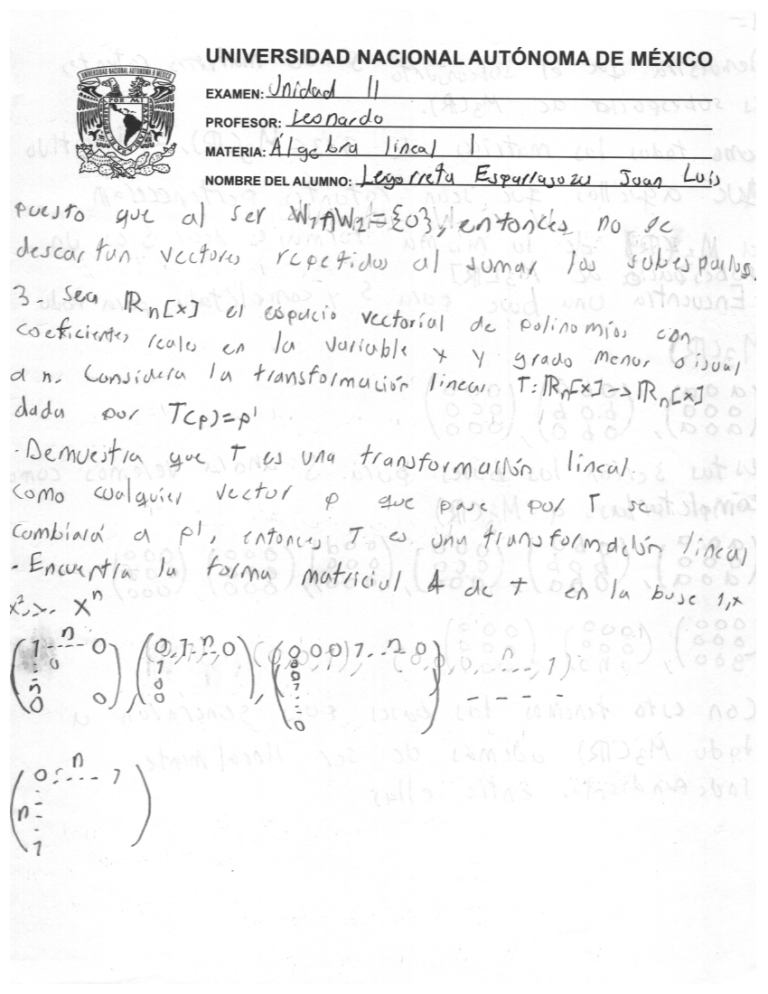 UNIVERSIDAD NACIONAL AUTÓNOMA DE MÉXICO
EXAMEN: Unidad II
PROFESOR: Leonardo
MATERIA: Álgebra lineal I
NOMBRE DEL ALUMNO: Legorreta Esparragoza Juan Luis
puesto que al ser W₁∩W₂={0}, entonces no se
descartan vectores repetidos al sumar los subespacios.
3- Sea ℝn[x] el espacio vectorial de polinomios con
coeficientes reales en la variable x y grado menor o igual
a n. Considera la transformación lineal T: ℝn[x]->ℝn[x]
dada por T(p)=p'
·Demuestra que T es una transformación lineal.
Como cualquier vector p que pase por T se
cambiará a p', entonces T es una transformación lineal
- Encuentra la forma matricial A de T en la base 1,x
x²... xⁿ
(1 --n-- 0 0 n 0 0), (0,1-n-,0 1 0 0), (0 0 0 1 .. n 0 0 0 1 0) (0,0,0, ... n, 1) - - - -
(0 ... n 1 n 1)